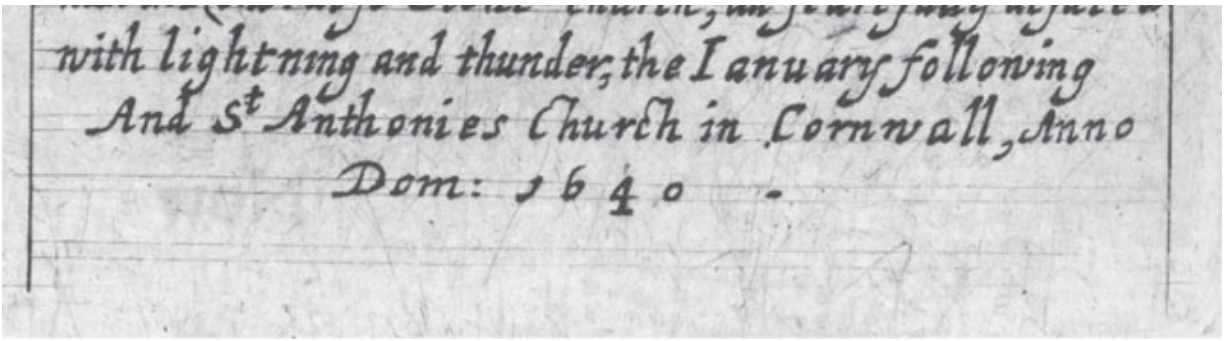 Church, 
with lightning and thunder, the Ianuary following
And St Anthonies Church in Cornwall, Anno
Dom: 1640 -